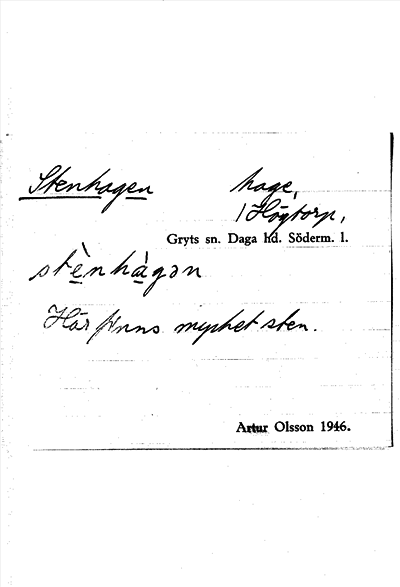 Stenhagen hage,
/Högtorp,
Gryts sn. Daga hd. Söderm. l.
stènhàgən
Här finns mycket sten.
Artur Olsson 1946.